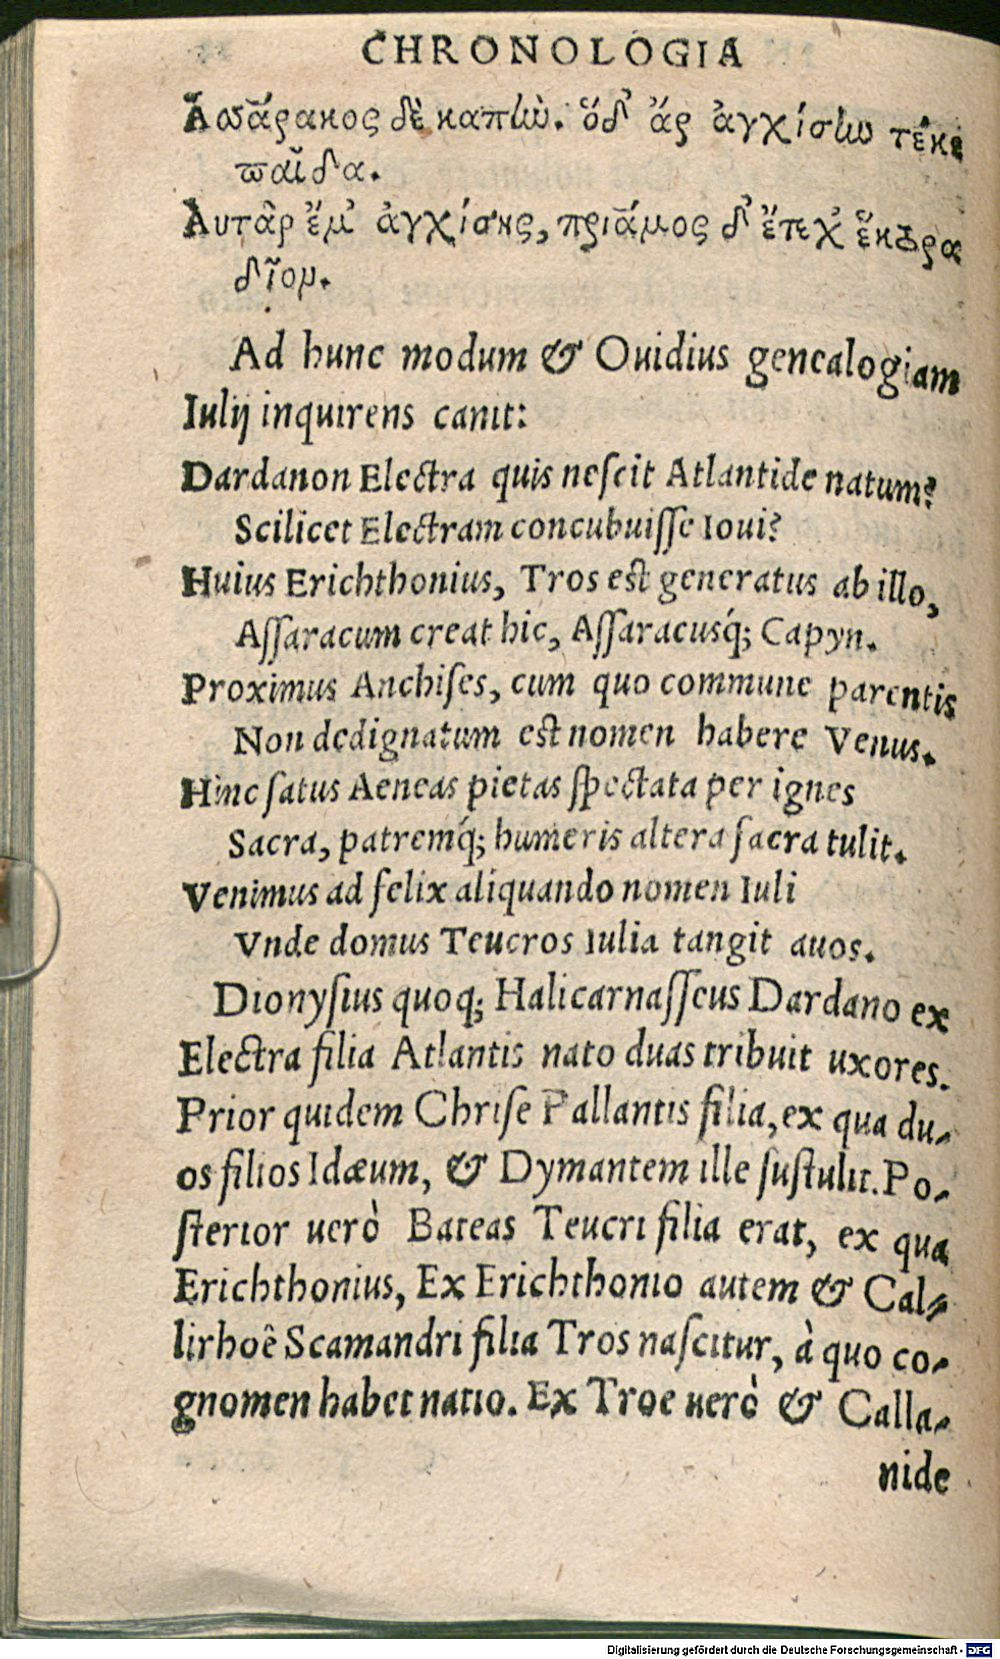 CHRONOLOGIA
Ἀσσάρακος δὲ καπιὼ. ὅδ' ἄρ ἀγχίσιω τέκε
παῖδα.
Αυτὰρ ἔμ' ἀγχίσης, πρίαμος δ' ἔτεχ' ἕκτορα
δῖον.
Ad hunc modum & Ouidius genealogiam
Iulij inquirens canit:
Dardanon Electra quis neſcit Atlantide natum?
Scilicet Electram concubuiſſe Ioui?
Huius Erichthonius, Tros est generatus ab illo,
Aſſaracum creat hic, Aſſaracusq́; Capyn.
Proximus Anchiſes, cum quo commune parentis
Non dedignatum est nomen habere Venus.
Hinc ſatus Aeneas pietas ſpectata per ignes
Sacra, patremq́; humeris altera ſacra tulit.
Venimus ad felix aliquando nomen Iuli
Vnde domus Teucros Iulia tangit auos.
Dionyſius quoq; Halicarnaſſeus Dardano ex
Electra filia Atlantis nato duas tribuit uxores.
Prior quidem Chriſe Pallantis filia, ex qua du-
os filios Idæum, & Dymantem ille ſuſtulit. Po-
ſterior uerò Bateas Teucri filia erat, ex qua
Erichthonius, Ex Erichthonio autem & Cal-
lirhoê Scamandri filia Tros naſcitur, à quo co-
gnomen habet natio. Ex Troe uerò & Calla-
nide
Digitalisierung gefördert durch die Deutsche Forschungsgemeinschaft - DFG